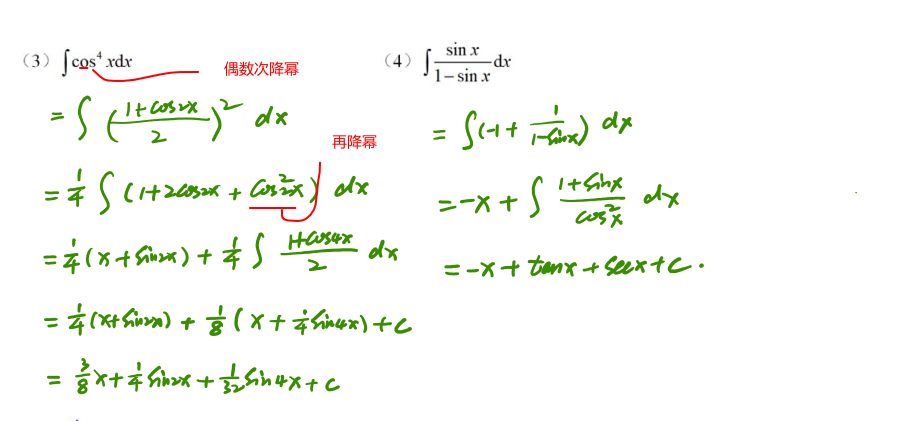 (3) ∫cos⁴ xdx
偶数次降幂
= ∫ ((1+cos2x)/2)² dx
再降幂
= 1/4 ∫ (1+2cos2x + cos²2x) dx
= 1/4 (x+sin2x) + 1/4 ∫ (1+cos4x)/2 dx
= 1/4 (x+sin2x) + 1/8 (x + 1/4 sin4x) + c
= 3/8 x + 1/4 sin2x + 1/32 sin4x + c
(4) ∫ sin x/(1−sin x) dx
= ∫(-1 + 1/(1-sinx)) dx
= -x + ∫ (1+sinx)/cos²x dx
= -x + tanx + secx + c.